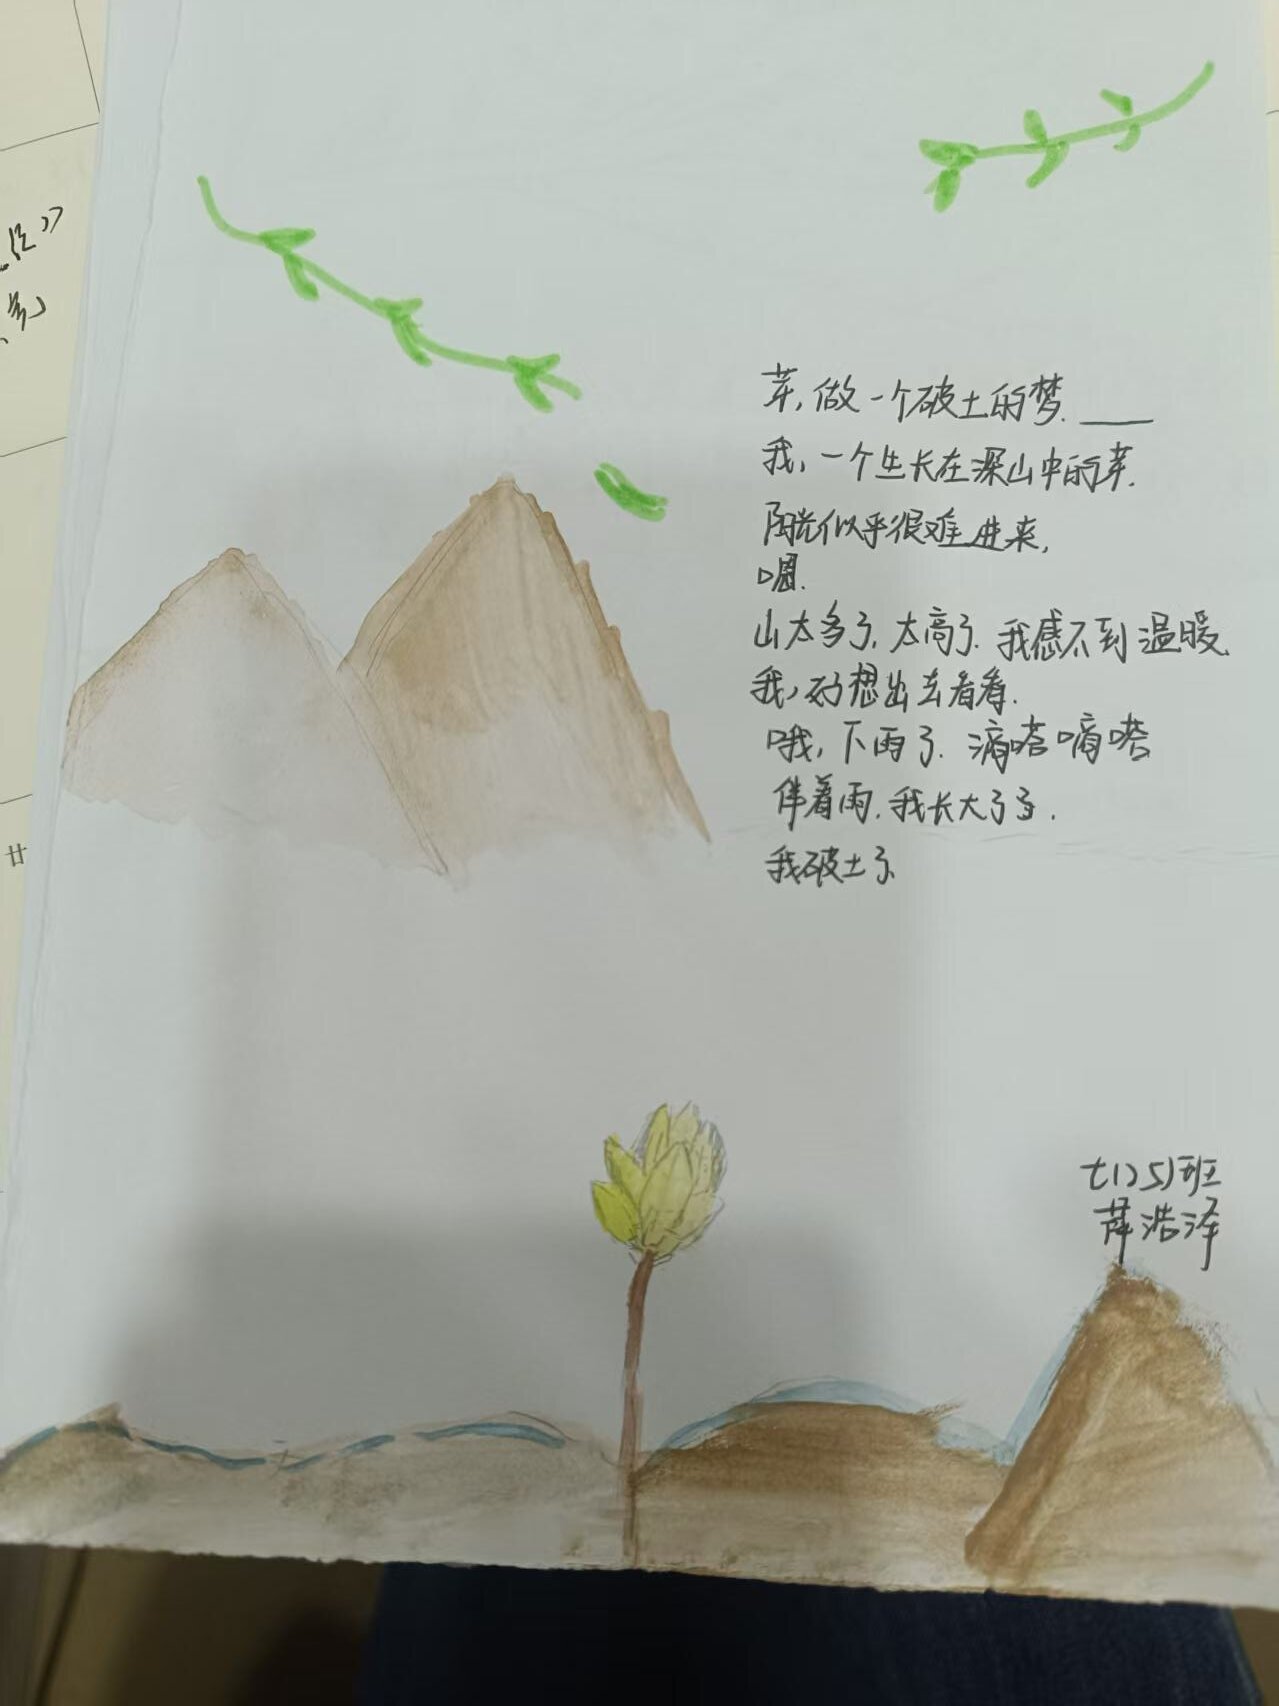 芽,做一个破土的梦.——
我,一个生长在深山中的芽.
阳光似乎很难进来,
嗯.
山太多了,太高了.我感不到温暖.
我,好想出去看看.
哦,下雨了.滴嗒嘀嗒
伴着雨.我长大了.
我破土了
七(25)班
薛浩泽